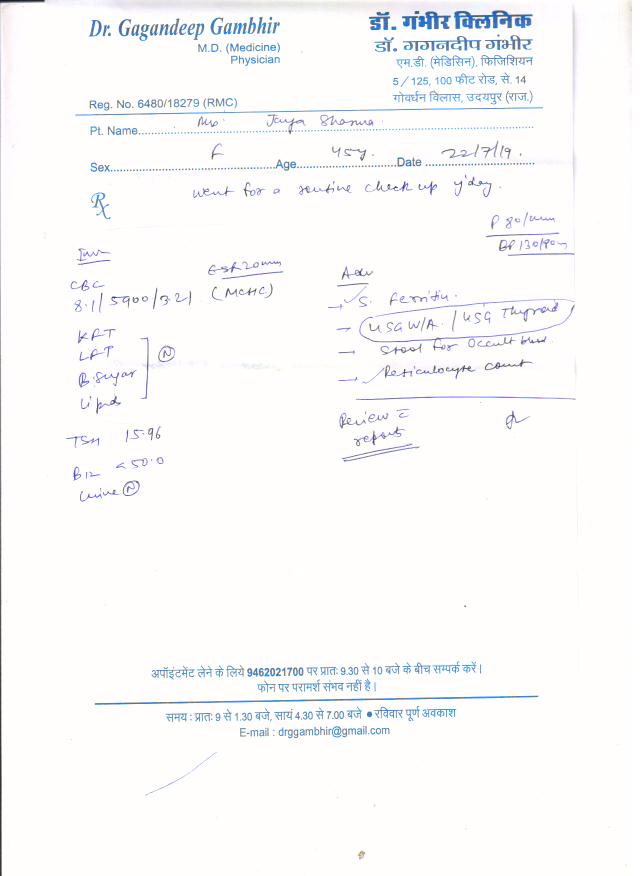 Dr. Gagandeep Gambhir
M.D. (Medicine)
Physician
Reg. No. 6480/18279 (RMC)
डॉ. गंभीर क्लिनिक
डॉ. गगनदीप गंभीर
एम.डी. (मेडिसिन), फिजिशियन
5/125, 100 फीट रोड, से. 14
गोवर्धन विलास, उदयपुर (राज.)
Pt. Name Mrs. Jaya Sharma.
Sex F Age 45y. Date 22/7/19.
Rx
went for a routine check up y'day.
P 80/min
BP 130/90
Inv
ESR 20mm
CBC
8.1/5900/3.21 (MCHC)
KFT
LFT
B. Sugar
Lipids
(N)
TSH 15.96
B12 <50.0
Urine (N)
Adv
→ S. Ferritin.
→ USG W/A. / USG Thyroid
→ Stool for Occult
→ Reticulocyte count
Review c̄
reports
अपॉइंटमेंट लेने के लिये 9462021700 पर प्रातः 9.30 से 10 बजे के बीच सम्पर्क करें।
फोन पर परामर्श संभव नहीं है।
समय : प्रातः 9 से 1.30 बजे, सायं 4.30 से 7.00 बजे ● रविवार पूर्ण अवकाश
E-mail : drggambhir@gmail.com